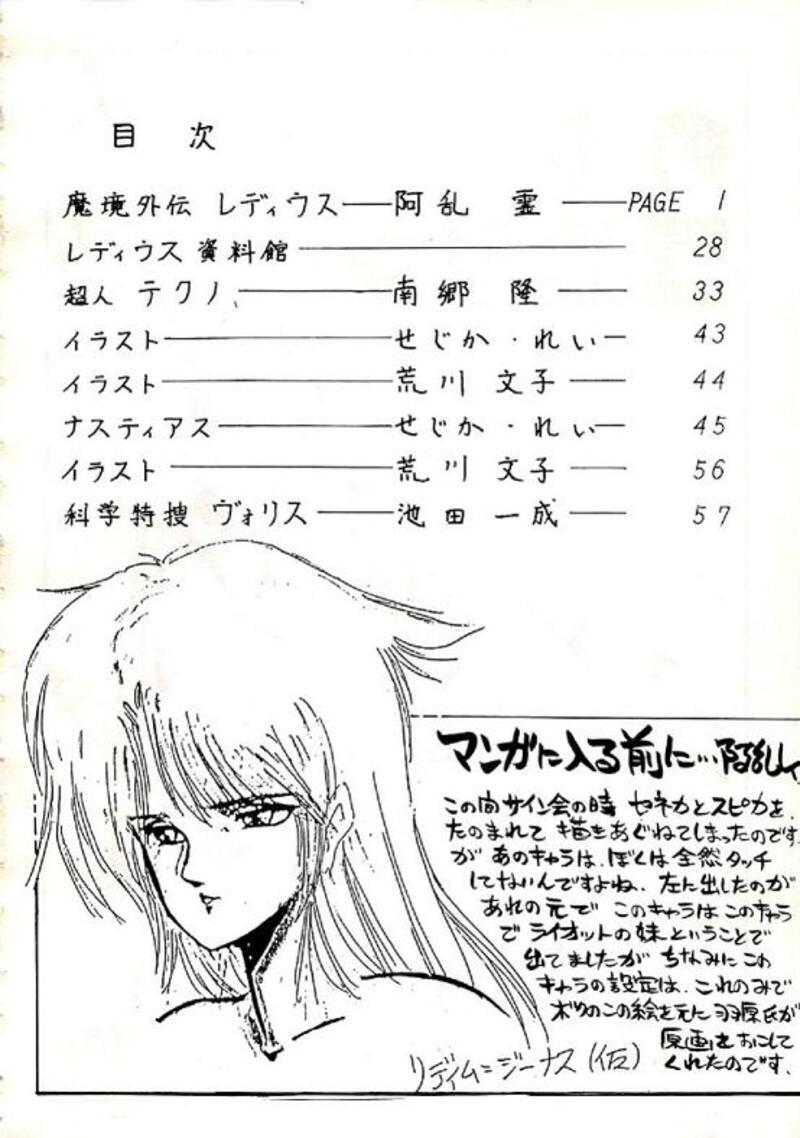 目 次
魔境外伝 レディウス——阿乱 霊——PAGE 1
レディウス 資料館——28
超人 テクノ、——南郷 隆——33
イラスト——せじか・れい——43
イラスト——荒川 文子——44
ナスティアス——せじか・れい——45
イラスト——荒川 文子——56
科学特捜 ヴォリス——池田 一成——57
マンガに入る前に…阿乱
この向サイン会の時 セネカとスピカを、
たのまれて 描きあぐねてしまったのです
が あのキャラは、ぼくは全然タッチ
してないんですよね、左に出したのが
あれの元で このキャラは このキャラ
で ライオットの妹ということで
出てましたが ちなみに この
キャラの設定は、これのみで
ボクのこの絵を元に 羽原氏が
原画をおこして
くれたのです。
リディム=ジーナス(仮)